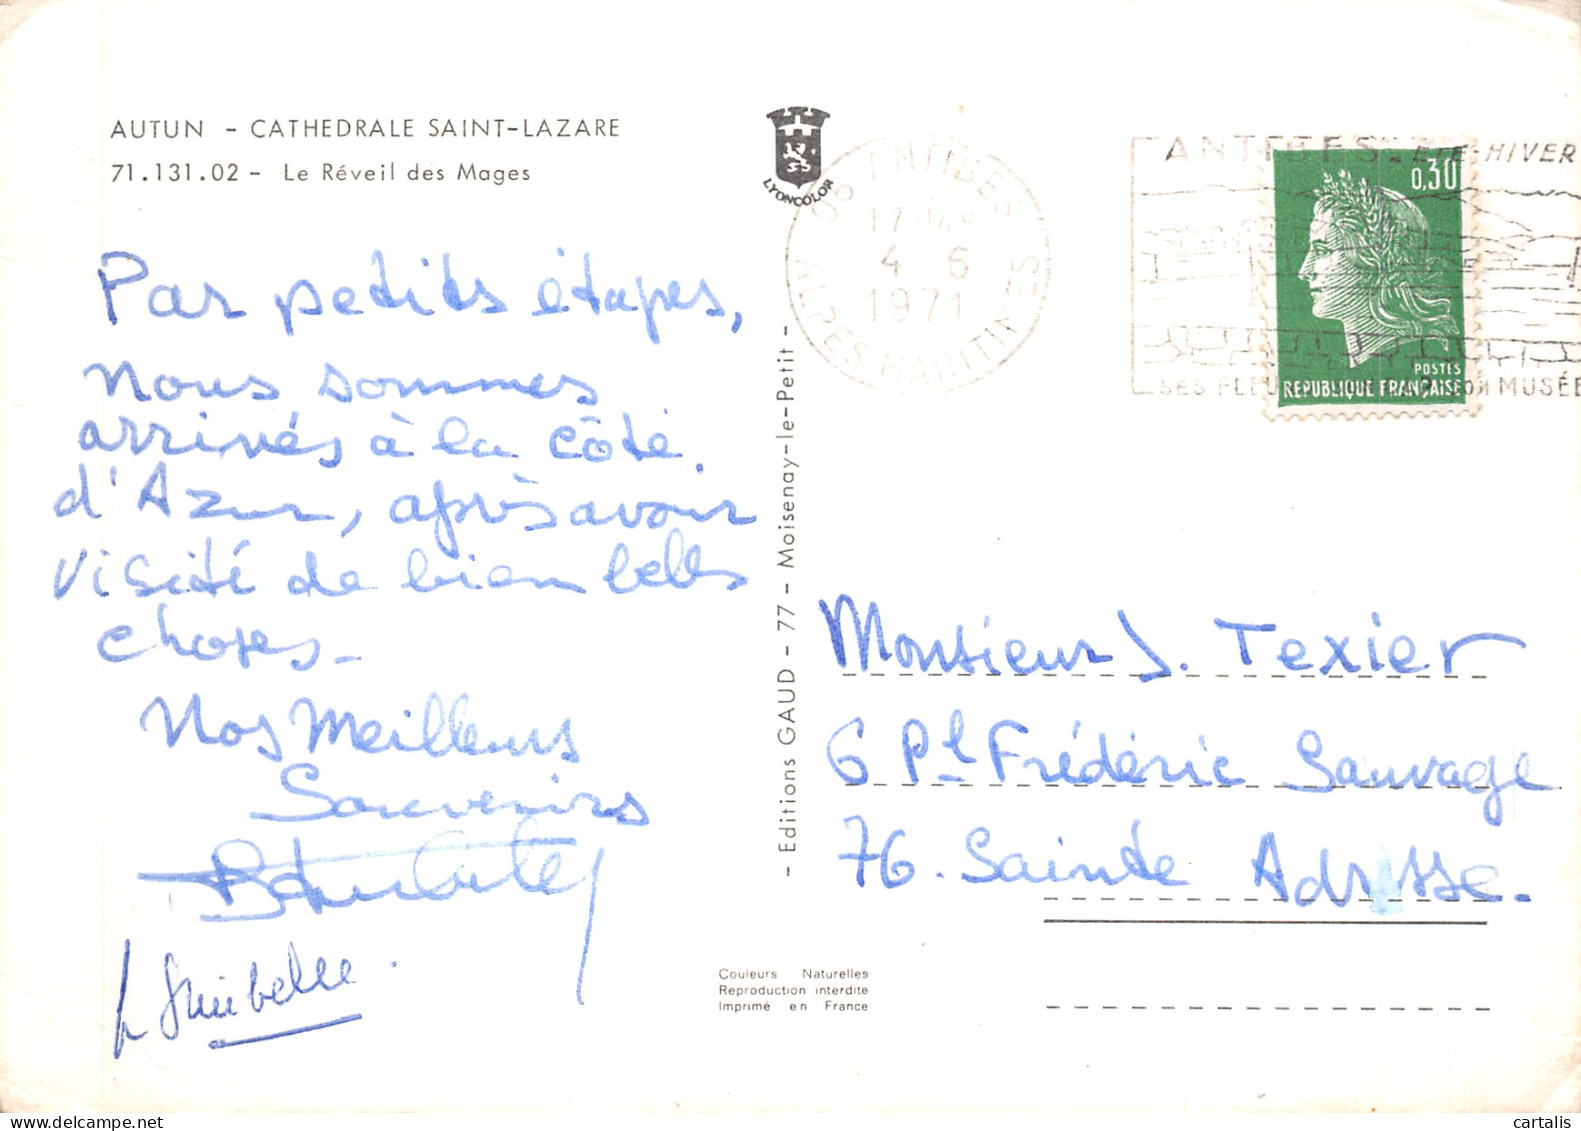 AUTUN - CATHEDRALE SAINT-LAZARE
71.131.02 - Le Réveil des Mages
LYONCOLOR
Par petits étapes,
nous sommes
arrivés à la côte
d'Azur, après avoir
visité de bien belles
choses -
Nos Meilleurs
Souvenirs
- Editions GAUD - 77 - Moisenay-le-Petit -
Couleurs Naturelles
Reproduction interdite
Imprimé en France
06 ANTIBES
17H
4 6
1971
ALPES MARITIMES
ANTIBES - ETE-HIVER
SES FLEURS MUSÉE
0,30
POSTES
REPUBLIQUE FRANÇAISE
Monsieur J. Texier
6 Pl Frédéric Sauvage
76. Sainte Adresse.
cartalis